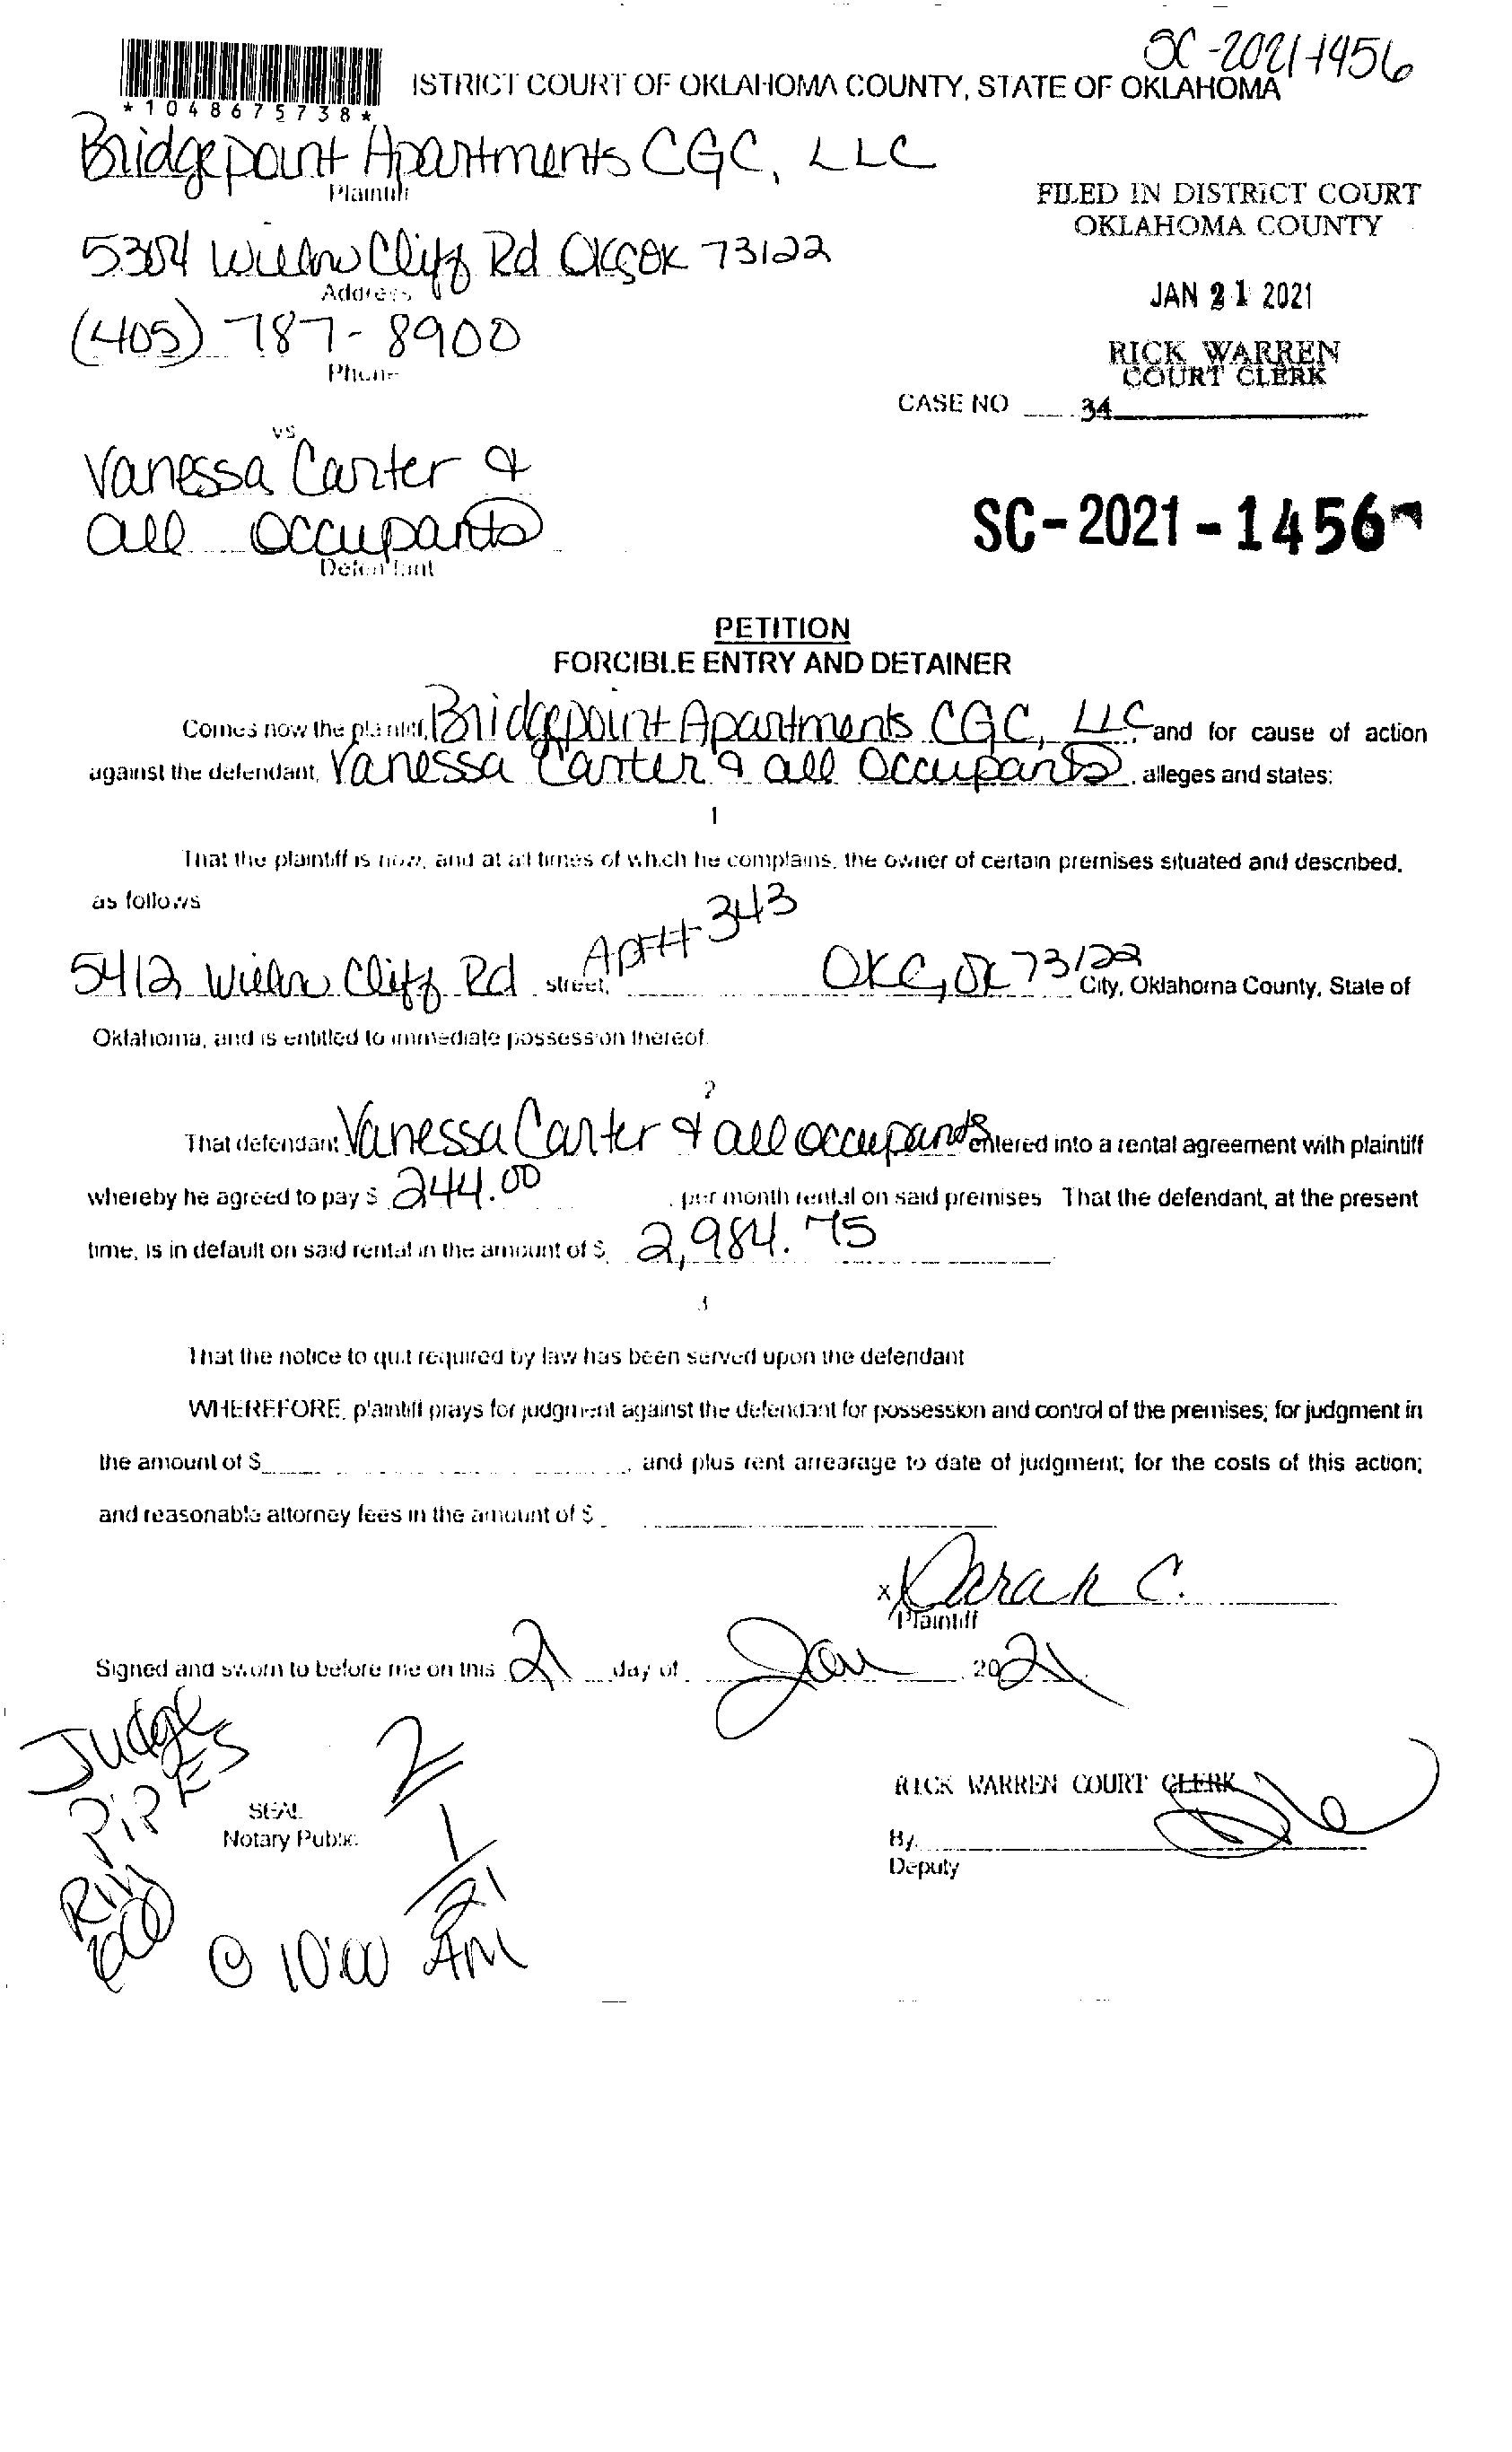 SC-2021-1456
ISTRICT COURT OF OKLAHOMA COUNTY, STATE OF OKLAHOMA
*1048675738*
Bridgepoint Apartments CGC, LLC
Plaintiff
FILED IN DISTRICT COURT
OKLAHOMA COUNTY
5304 Willow Cliff Rd OKC OK 73122
Address
JAN 21 2021
(405) 787-8900
Phone
RICK WARREN
COURT CLERK
CASE NO
34
vs
Vanessa Carter &
all occupants
Defendant
SC-2021-1456
PETITION
FORCIBLE ENTRY AND DETAINER
Comes now the plaintiff, Bridgepoint Apartments CGC, LLC and for cause of action
against the defendant, Vanessa Carter & all occupants, alleges and states:
1
That the plaintiff is now, and at all times of which he complains, the owner of certain premises situated and described,
as follows
5412 Willow Cliff Rd street, Apt# 343 OKC, OK 73122 City, Oklahoma County, State of
Oklahoma, and is entitled to immediate possession thereof.
2
That defendant Vanessa Carter & all occupants entered into a rental agreement with plaintiff
whereby he agreed to pay $ 244.00, per month rental on said premises That the defendant, at the present
time, is in default on said rental in the amount of $ 2,984.75
3
That the notice to quit required by law has been served upon the defendant
WHEREFORE, plaintiff prays for judgment against the defendant for possession and control of the premises; for judgment in
the amount of $ , and plus rent arrearage to date of judgment; for the costs of this action;
and reasonable attorney fees in the amount of $
x Sarah C.
Plaintiff
Signed and sworn to before me on this 21 day of Jan 2021
Judge
PIPES
2/1/21
RICK WARREN COURT CLERK
SEAL
Notary Public
By
Deputy
Rm
@ 10:00 AM